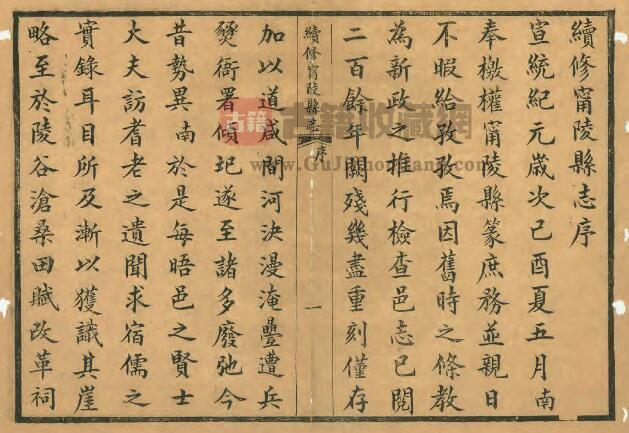 續修甯陵縣志序
宣統紀元歲次己酉夏五月南
奉檄權甯陵縣篆庶務並親日
不暇給孜孜焉因舊時之條教
為新政之推行檢查邑志已閱
二百餘年闕殘幾盡重刻僅存
續修甯陵縣志
序
一
加以道咸間河決漫淹疊遭兵
燹衙署傾圮遂至諸多廢弛今
昔勢異南於是每晤邑之賢士
大夫訪耆老之遺聞求宿儒之
實錄耳目所及漸以獲識其崖
略至於陵谷滄桑田賦改革祠
古籍
古籍收藏網